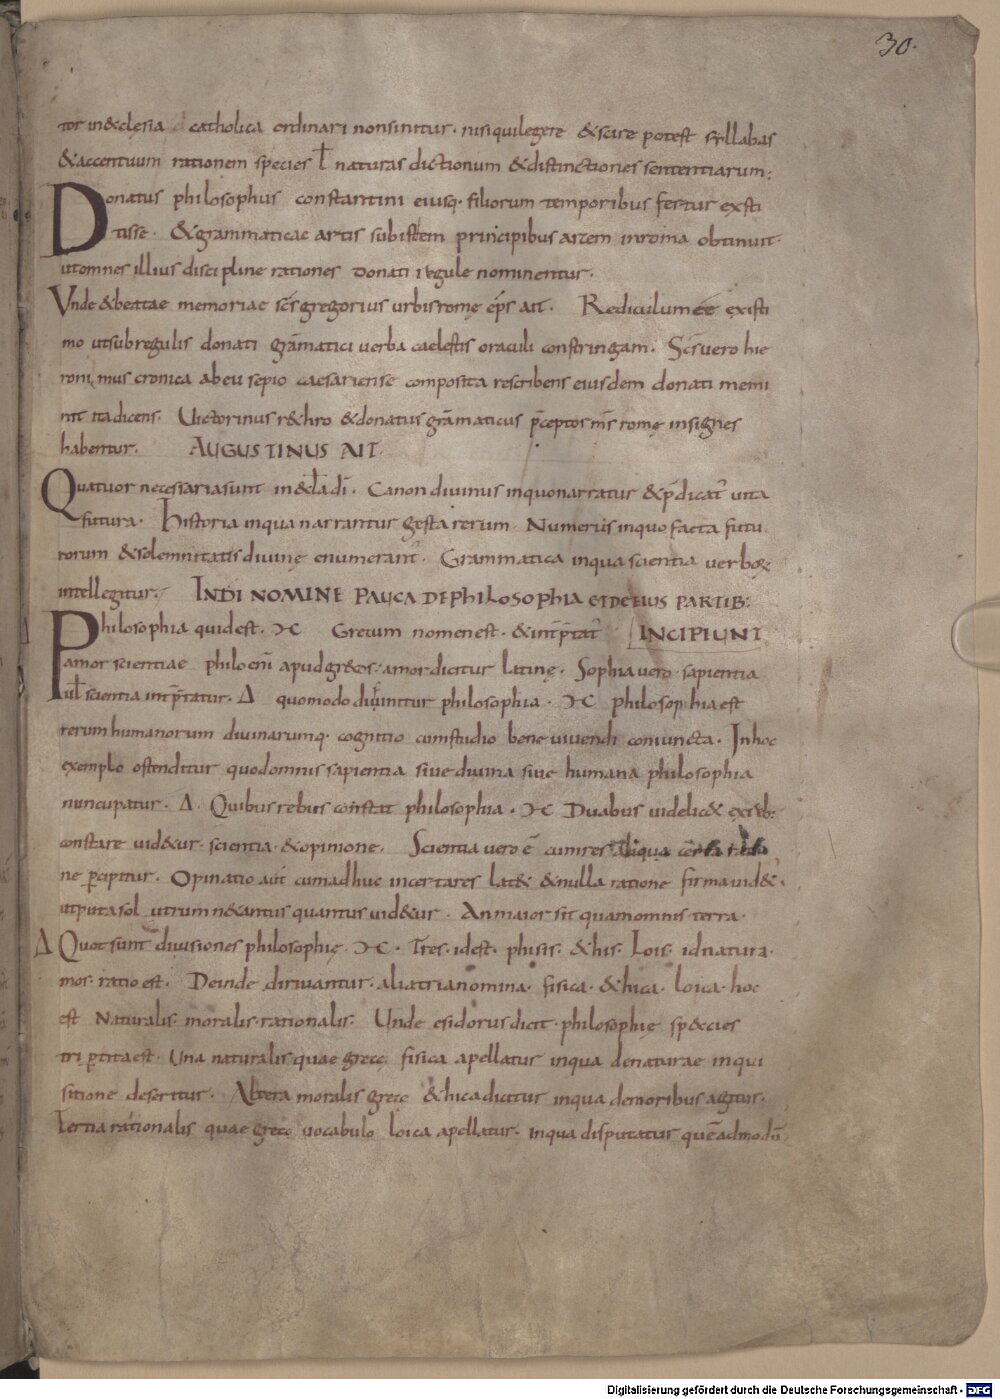 30.
tor in &clesia catholica ordinari non sinitur · nisi qui legere & scire potest syllabas
& accentuum rationem species ł naturas dictionum & distinctiones sententiarum;
Donatus philosophus constantini eiusq· filiorum temporibus fertur exsti
tisse · & grammaticae artis subistem principibus artem in roma obtinuit ·
ut omnes illius discipline rationes donati regule nominentur ·
Unde & beatae memoriae sc̄s gregorius urbis rome ēps ait · Rediculum ēē existi
mo ut sub regulis donati grāmatici verba caelestis oraculi constringam · Sc̄s vero hie
ronimus cronica ab eusepio caesariense composita rescribens eiusdem donati memi
nit ita dicens · Uictorinus r&hro & donatus grāmaticus p̄ceptos mīs romę insignes
habentur · AUGUSTINUS AIT ·
Quatuor necessaria sunt in &cła dī · Canon divinus in quo narratur & p̄dicat̄ uita
futura · Historia in qua narrantur gesta rerum · Numerus in quo facta futu
rorum & solemnitatis divinę enumerant̄ · Grammatica in qua scientia verborꝝ
intellegitur · IN DĪ NOMINE PAUCA DE PHILOSOPHIA ET DE EIUS PARTIB:
Philosophia quid est · Ↄ–C Grecum nomen est · & int̄p̄tat̄ INCIPIUNT
amor scientiae philo enī apud grecos · amor dicitur latinę · Sophia vero sapientia
uł scientia int̄p̄tatur · Δ quomodo difinitur philosophia · Ↄ–C philosophia est
rerum humanorum divinarumq· cognitio cum studio bene vivendi coniuncta · In hoc
exemplo ostenditur quod omnis sapientia sive divina sive humana philosophia
nuncupatur · Δ · Quibus rebus constat philosophia · Ↄ–C Duabus videlic& ex reb:
constare vid&ur · scientia · & opinione · Scientia vero ē cum res aliqua certa ratio
ne p̄cipitur · Opinatio aūt cum adhuc incerta res lat& & nulla ratione firma vid&̄ ·
utputa sol utrum n& antus quantus vid&ur · An maior sit quam omnis terra ·
Δ Quot sunt divisiones philosophię · Ↄ–C · Tres · id est · phisis · &his · Lois · id natura ·
mos · ratio est · Deinde dirivantur · alia tria nomina · fisica · &hica · loica · hoc
est Naturalis · moralis · rationalis · Unde esidorus dicit · philosophię sp&cies
tripertita est · Una naturalis quae grecę fisica apellatur in qua de naturae inqui
sitione deseritur · Altera moralis grecę &hica dicitur in qua de moribus agitur ·
Tertia rationalis quae greco vocabulo loica apellatur · in qua disputatur quēadmodū
Digitalisierung gefördert durch die Deutsche Forschungsgemeinschaft - DFG